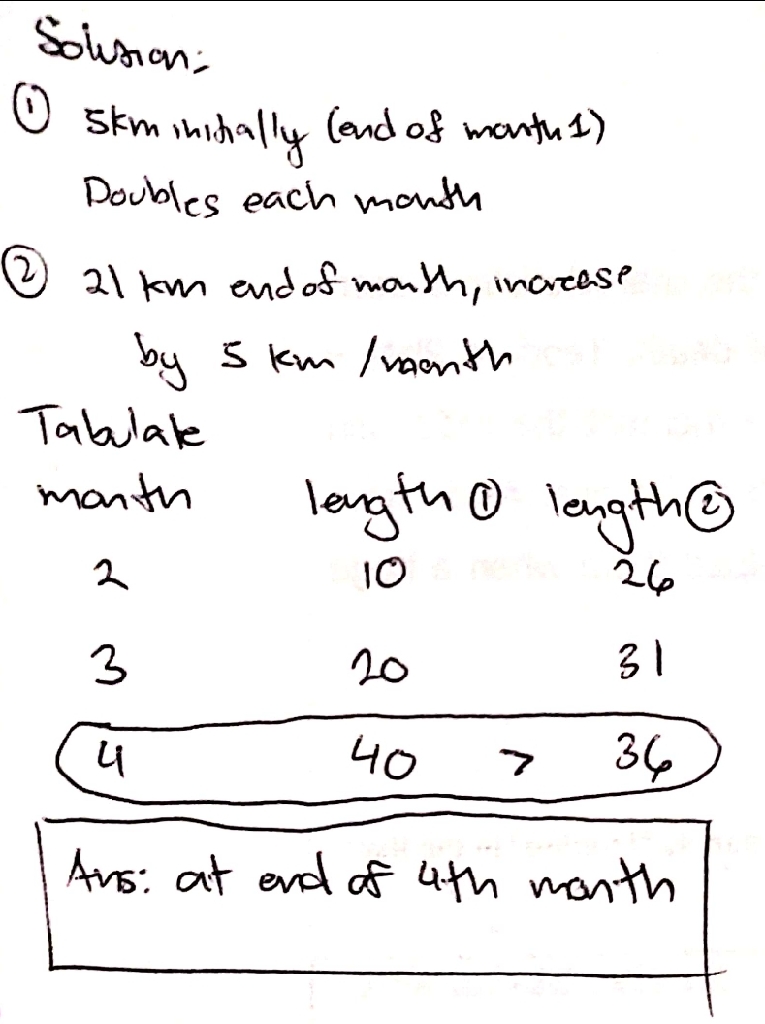 Solution:
① 5km initially (end of month 1)
Doubles each month
② 21 km end of month, increase
by 5 km /month
Tabulate
month length ① length ②
2 10 26
3 20 31
4 40 > 36
Ans: at end of 4th month